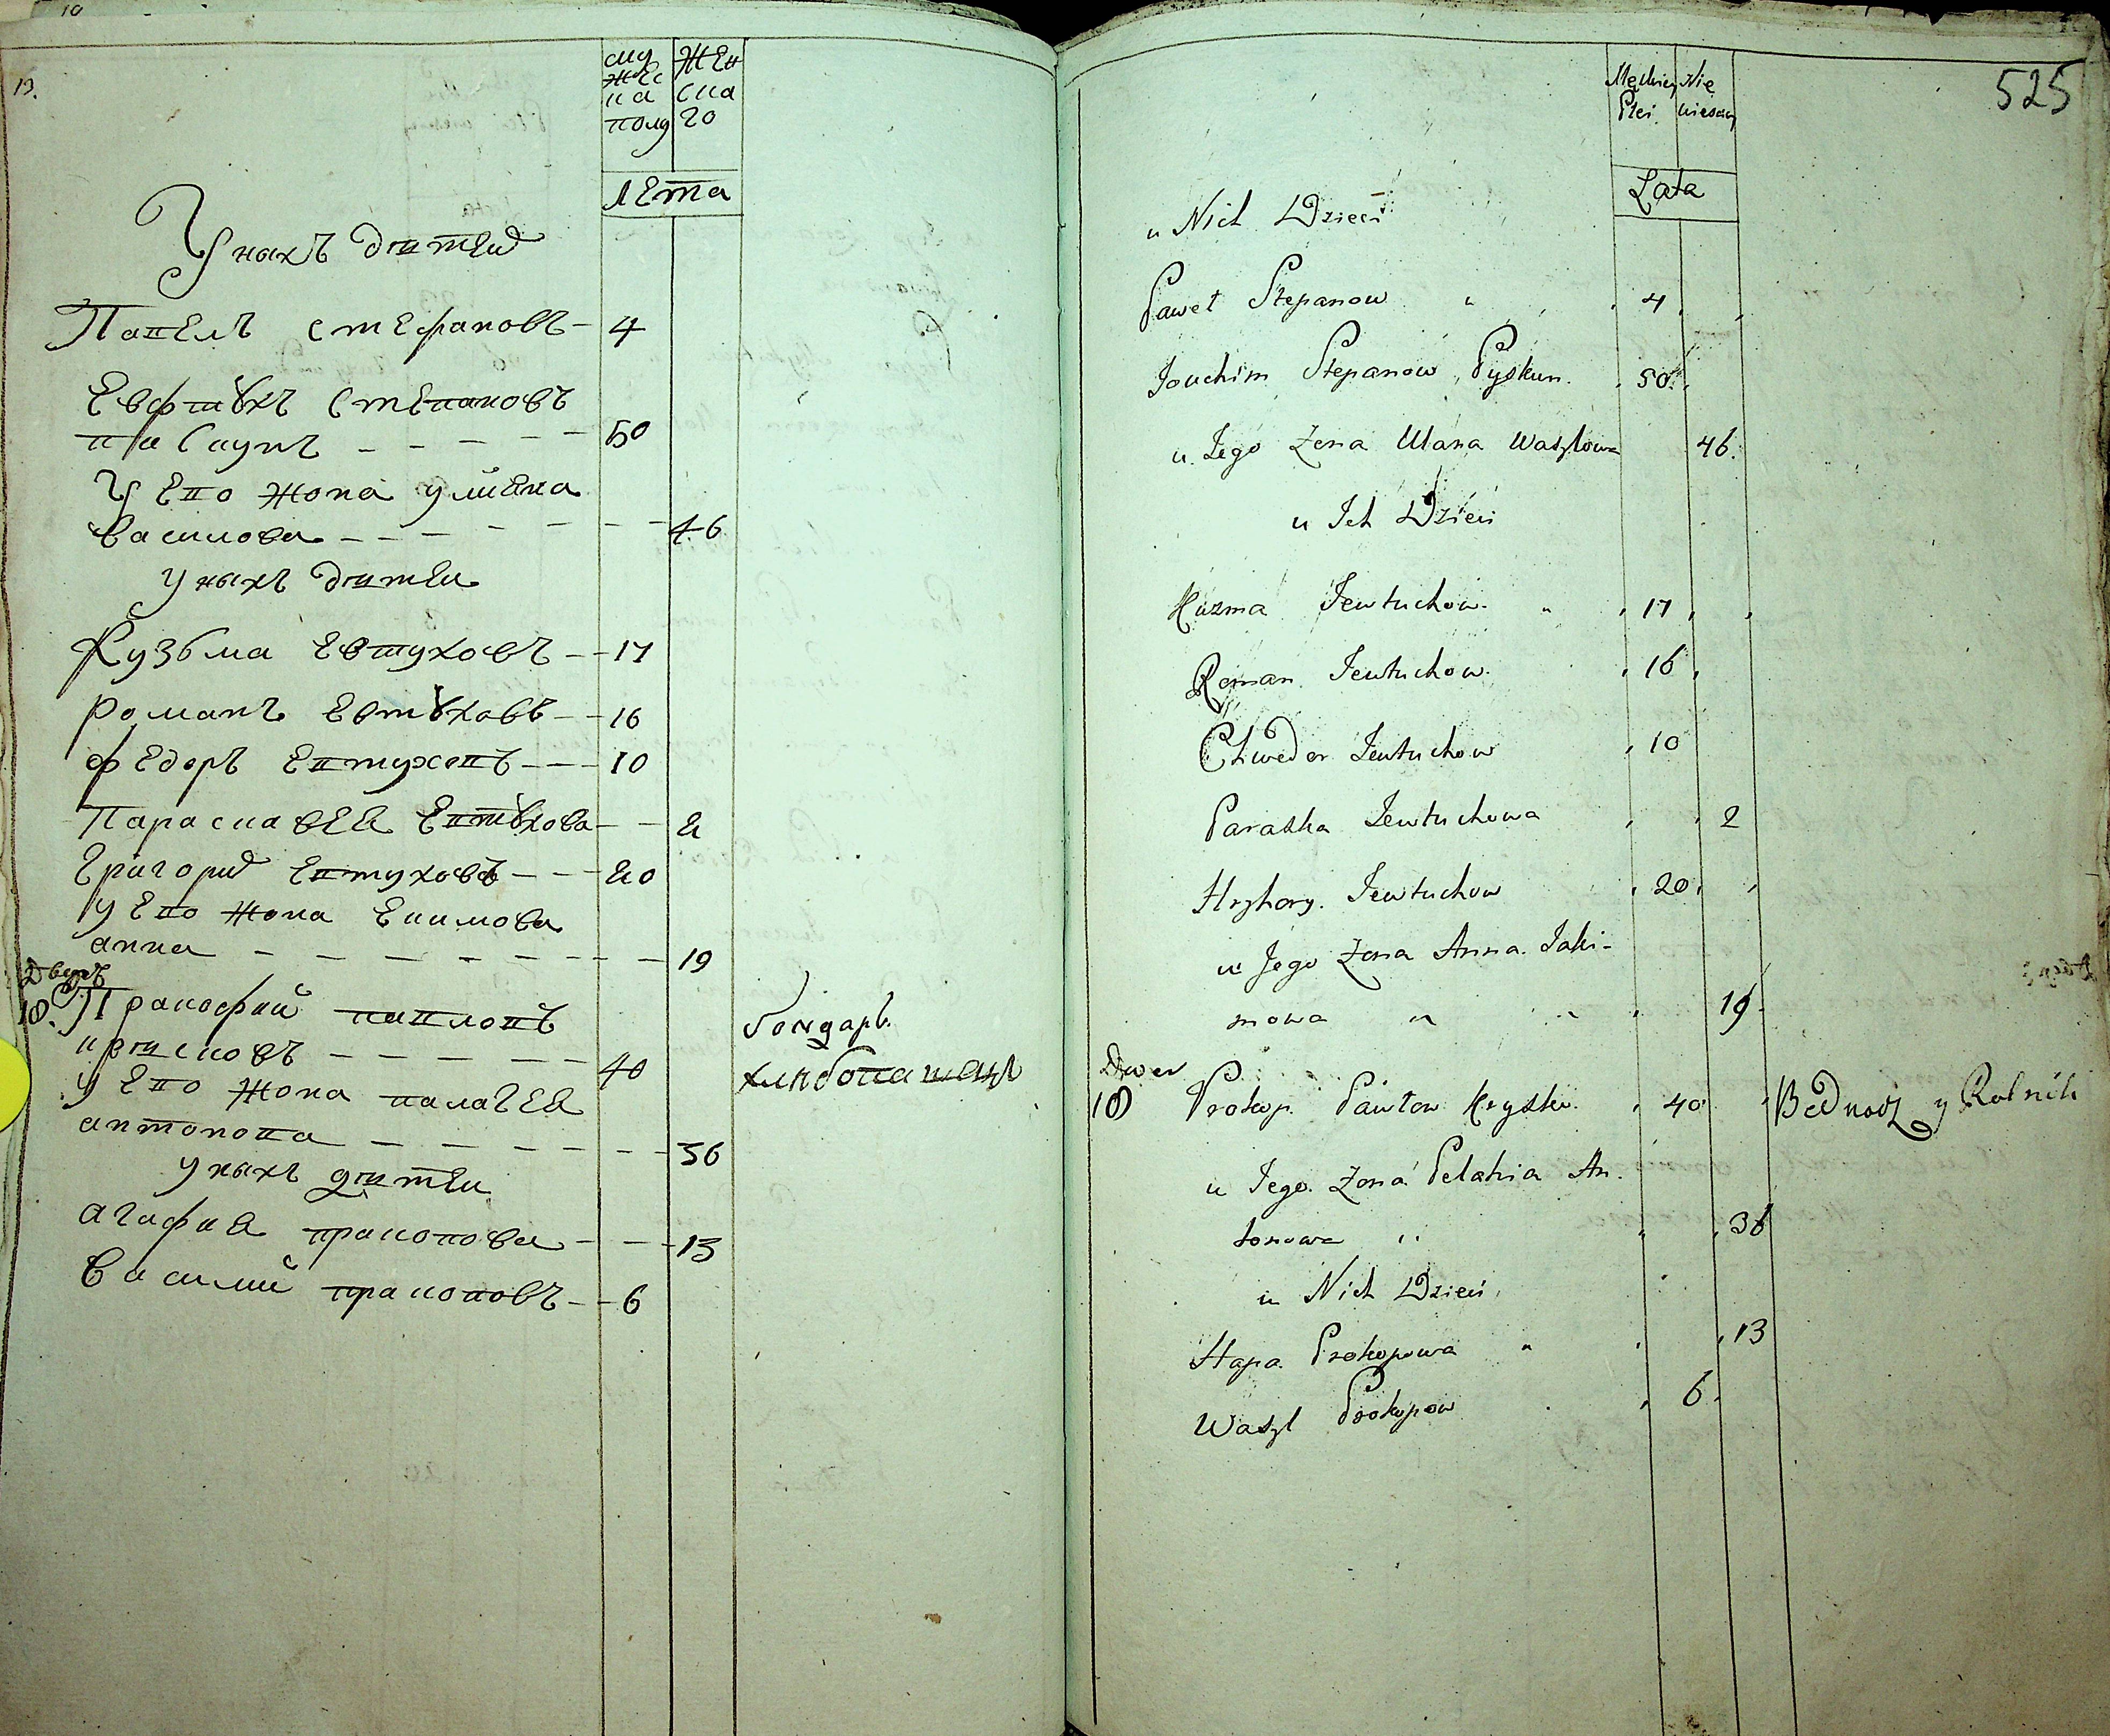 10
19.
мужес ка полу
жен ска го
лета
У ныхъ дитей
Павелъ Стефановъ - 4
Евфтухъ Степановъ
пискунъ - - - - 50
У Его жона улияна
василова - - - - - - 46
у ныхъ дитей
Кузьма Евтуховъ - - 17
романъ Евтуховъ - - 16
федоръ Евтуховъ - - - 10
Параскавея Евтухова - - 2
Григорий Евтуховъ - - - 20
у Его жона Екимова
анна - - - - - - - - 19
Двуръ
18. Пракофий павловъ бондарь
крисковъ - - - - - - 40 хлибопашецъ
у Его жона палагея
антонова - - - - - - - 36
у ныхъ дитей
агафия пракопова - - - 13
василий пракоповъ - - 6
525
Męskiey Płci
Nie wiesciey
Lata
u Nich Dzieci
Paweł Stepanow 4
Jouchim Stepanow Pyskun. 50
u Jego Zona Ulana Waszlowa 46.
u Ich Dzieci
Kuzma Jewtuchow. 17
Roman Jewtuchow. 16
Chweder Jewtuchow 10
Paraska Jewtuchowa 2
Hryhory. Jewtuchow 20
u Jego Zona Anna Jaki-
mowa 19.
Dwor
18 Prokop Pawłow Kryszko. 40 Bednarz y Rolnik
u Jego Zona Pelahia An.
tonowa 36
u Nich Dzieci
Hapa Prokopowa 13
Waszl Prokopow 6.